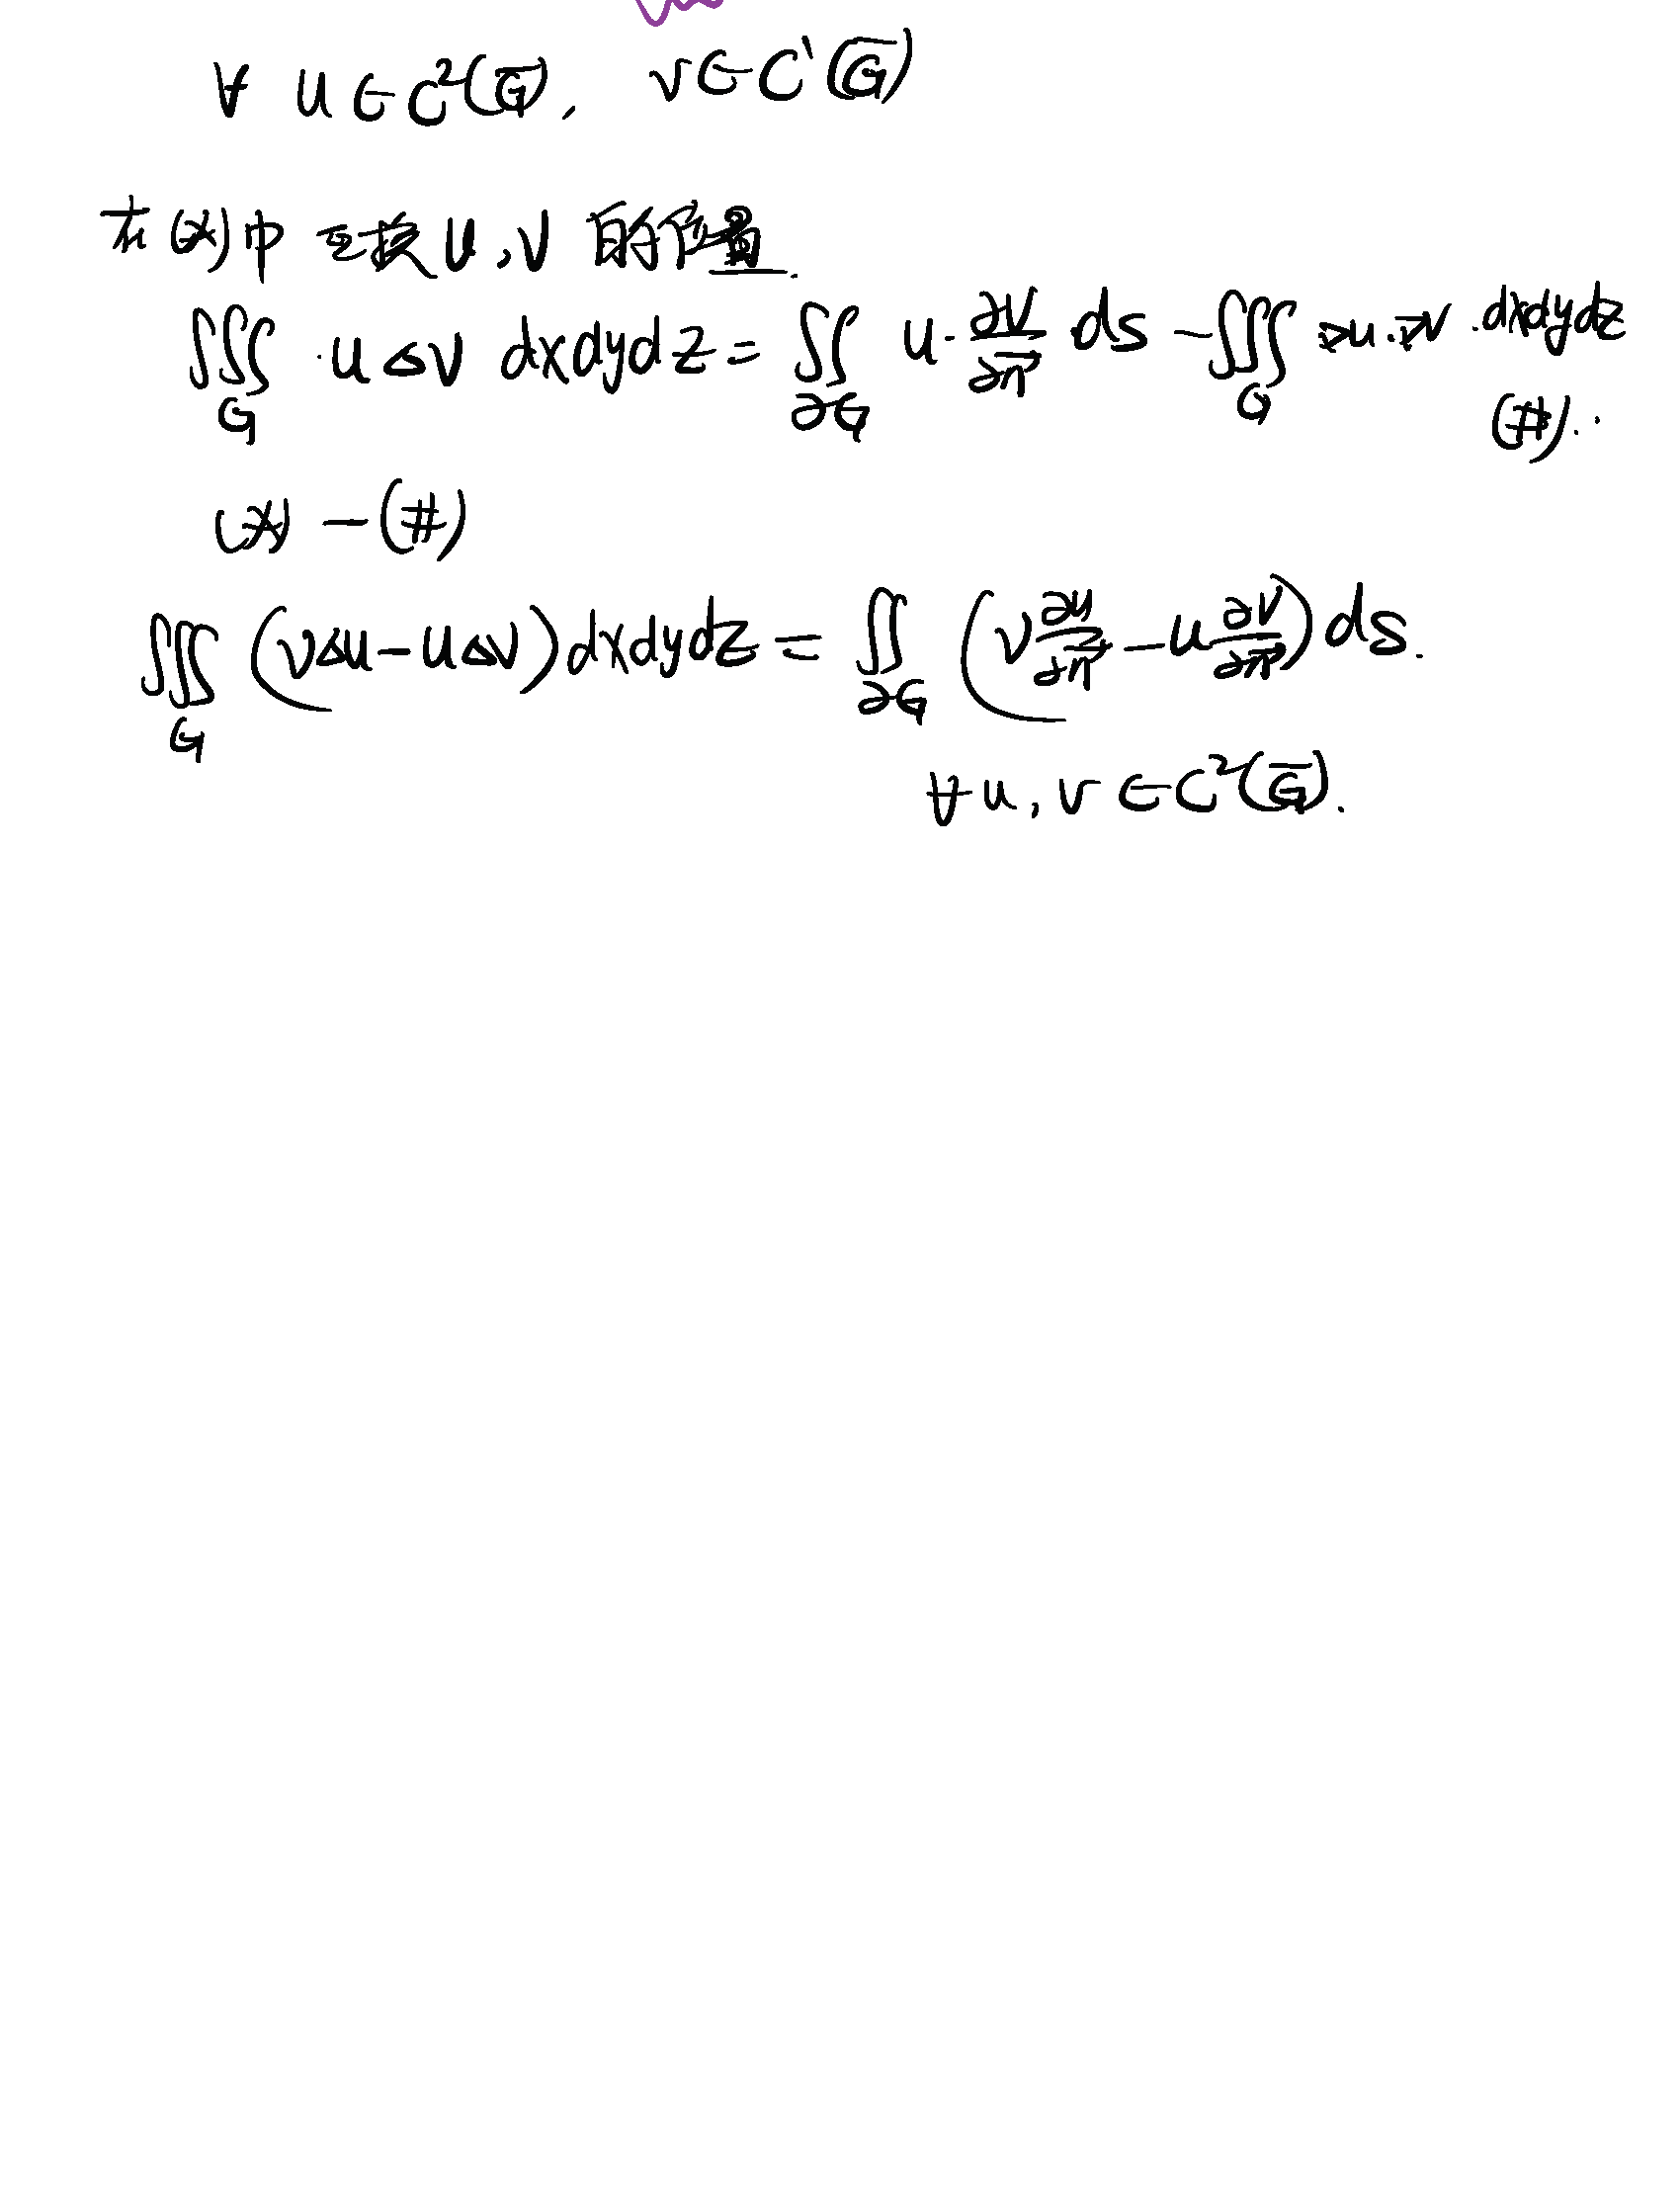 ∀ u∈C²(G̅), v∈C¹(G̅)
在(*)中 互换 u,v 的位置.
∭_G ·u△v dxdydz = ∬_∂G u·∂v/∂n⃗ ds − ∭_G ∇u·∇v dxdydz
(#).
(*) − (#)
∭_G (v△u − u△v) dxdydz = ∬_∂G (v ∂u/∂n⃗ − u ∂v/∂n⃗) ds.
∀ u, v ∈ C²(G̅).